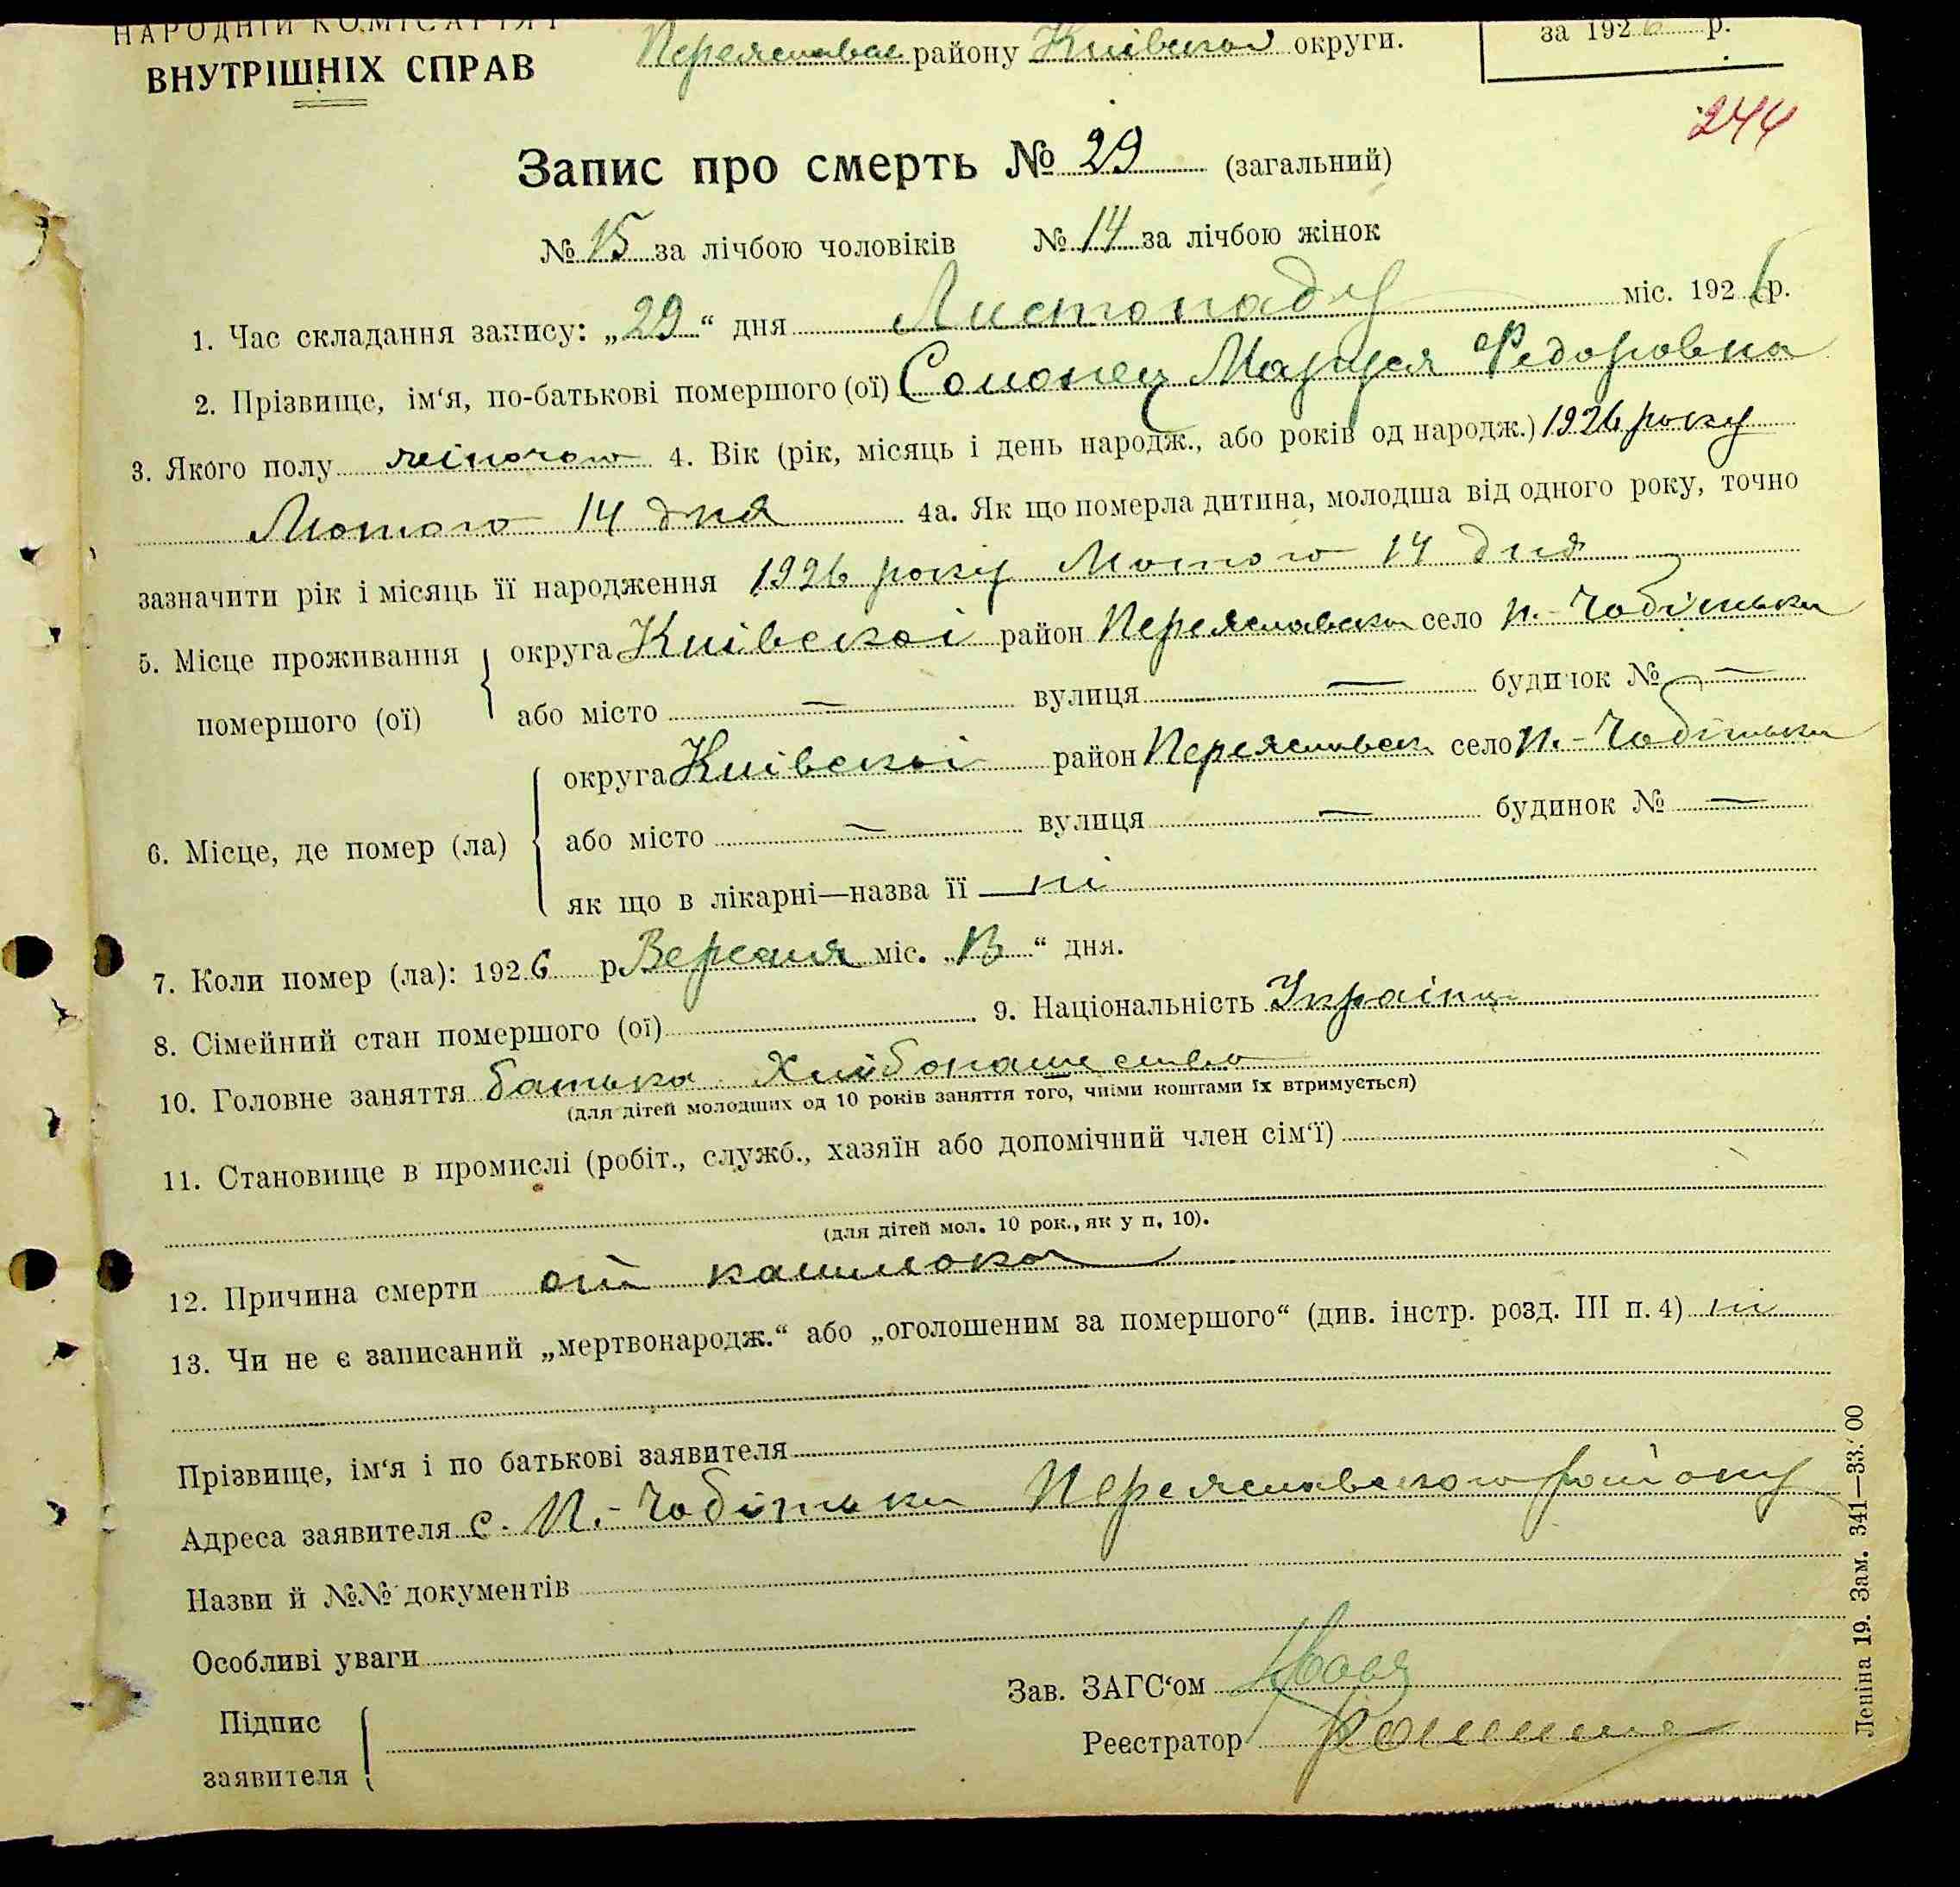 НАРОДНІЙ КОМІСАРІЯТ
ВНУТРІШНІХ СПРАВ
Переяславськ району Київської округи.
за 1926 р.
244
Запис про смерть № 29 (загальний)
№ 15 за лічбою чоловіків № 14 за лічбою жінок
1. Час складання запису: „29“ дня Листопаду міс. 1926 р.
2. Прізвище, ім‘я, по-батькові помершого (ої) Солонец Маруся Федоровна
3. Якого полу жіночого 4. Вік (рік, місяць і день народж., або років од народж.) 1926 року
Лютого 14 дня 4а. Як що померла дитина, молодша від одного року, точно
зазначити рік і місяць її народження 1926 року Лютого 14 дня
5. Місце проживання помершого (ої) округа Київскої район Переяславськ село п.-Чобітьки
або місто — вулиця — будинок № —
6. Місце, де помер (ла) округа Київскої район Переяславськ село п.-Чобітьки
або місто — вулиця — будинок № —
як що в лікарні—назва її ні
7. Коли помер (ла): 1926 р Вересня міс. „13“ дня.
8. Сімейний стан помершого (ої) 9. Національність Україн
10. Головне заняття батька Хлибопашество
(для дітей молодших од 10 років заняття того, чиїми коштами їх втримується)
11. Становище в промислі (робіт., служб., хазяїн або допомічний член сім‘ї)
(для дітей мол. 10 рок., як у п. 10).
12. Причина смерти от кашлюка
13. Чи не є записаний „мертвонародж.“ або „оголошеним за помершого“ (див. інстр. розд. III п. 4) ні
Прізвище, ім‘я і по батькові заявителя
Адреса заявителя с. П.-Чобітьки Переяславського району
Назви й №№ документів
Особливі уваги
Зав. ЗАГС‘ом
Підпис заявителя
Реєстратор
Леніна 19. Зам. 341—33.00